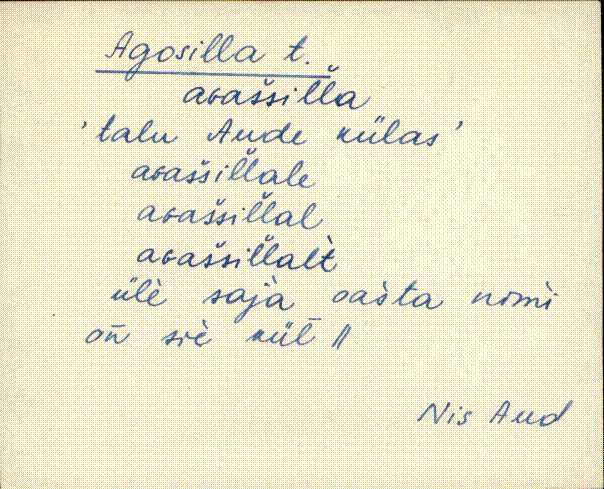 Agosilla t.
aɢašši̬l̆la
'talu Aude külas'
aɢaššil̆lale
aɢaššil̆lal
aɢaššil̆lal̀t
ülè̱ sajà̱ oašta nomì
on̄ siè̱ kül̄ ||
Nis Aud